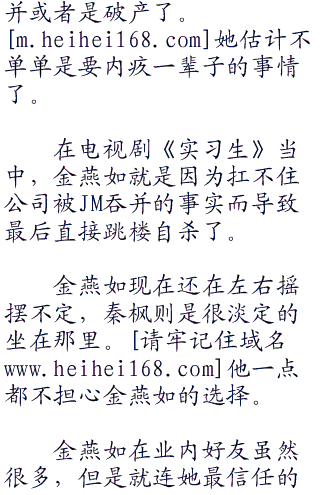 并或者是破产了。
[m.heihei168.com]她估计不
单单是要内疚一辈子的事情
了。
在电视剧《实习生》当
中，金燕如就是因为扛不住
公司被JM吞并的事实而导致
最后直接跳楼自杀了。
金燕如现在还在左右摇
摆不定，秦枫则是很淡定的
坐在那里。[请牢记住域名
www.heihei168.com]他一点
都不担心金燕如的选择。
金燕如在业内好友虽然
很多，但是就连她最信任的